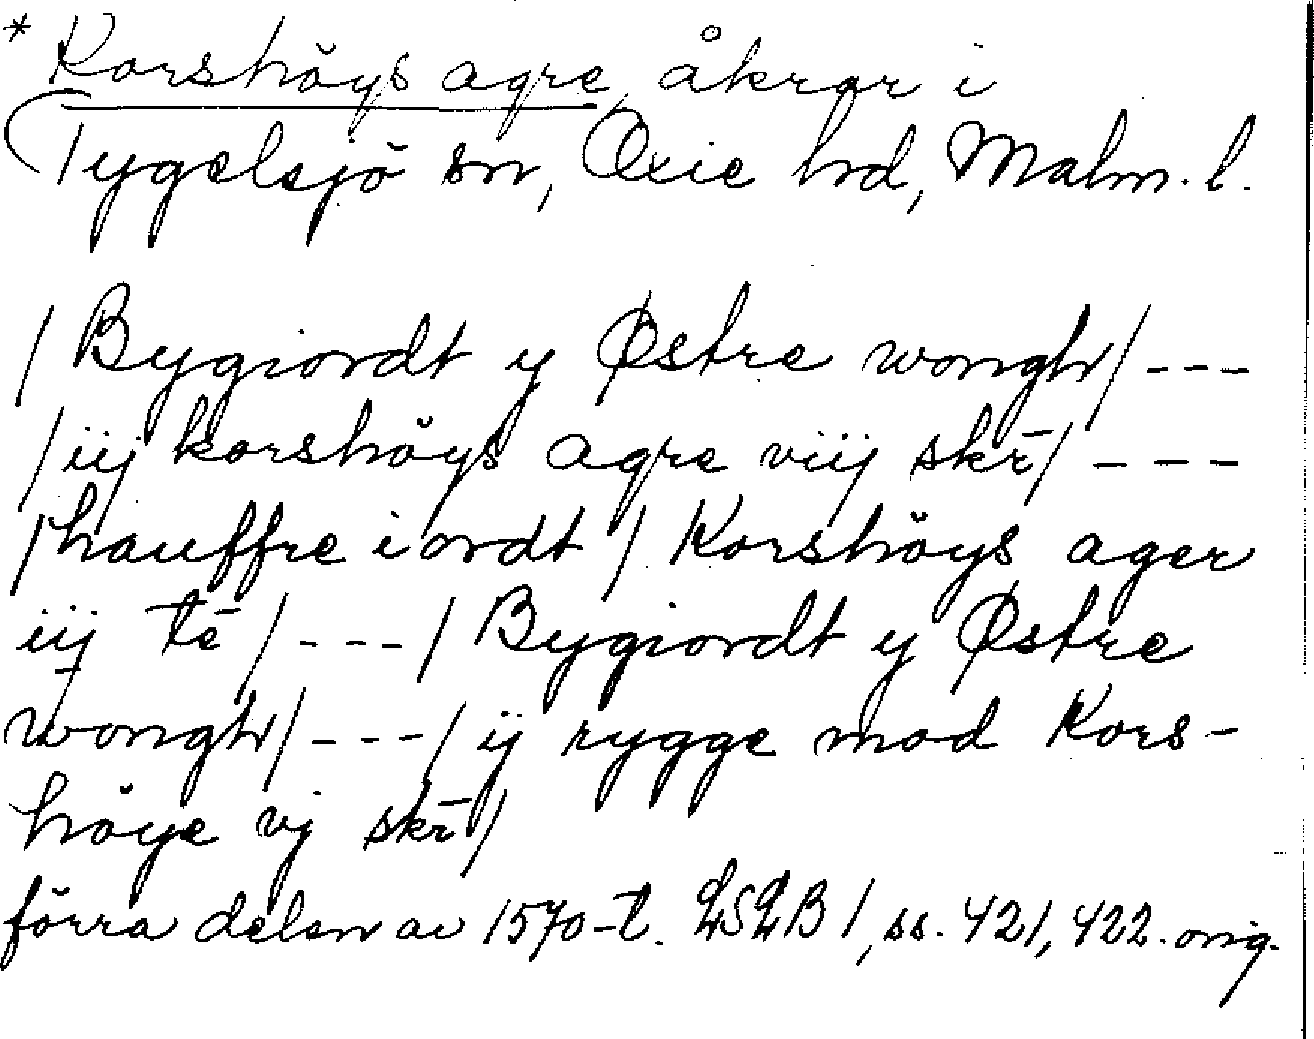 * Korshöys agre, åkrar i
Tygelsjö sn, Oxie hd, Malm. l.
/ Bygiordt y Østre wongh / ---
/ iij korshöys agre viij skr̄ / ---
/ hauffre iordt / Korshöys ager
iij tē / --- / Bygiordt y Østre
wongh / --- / ij rygge mod Kors-
höye vj skr̄ /
förra delen av 1570-t. LSLB 1, ss. 421, 422. orig.